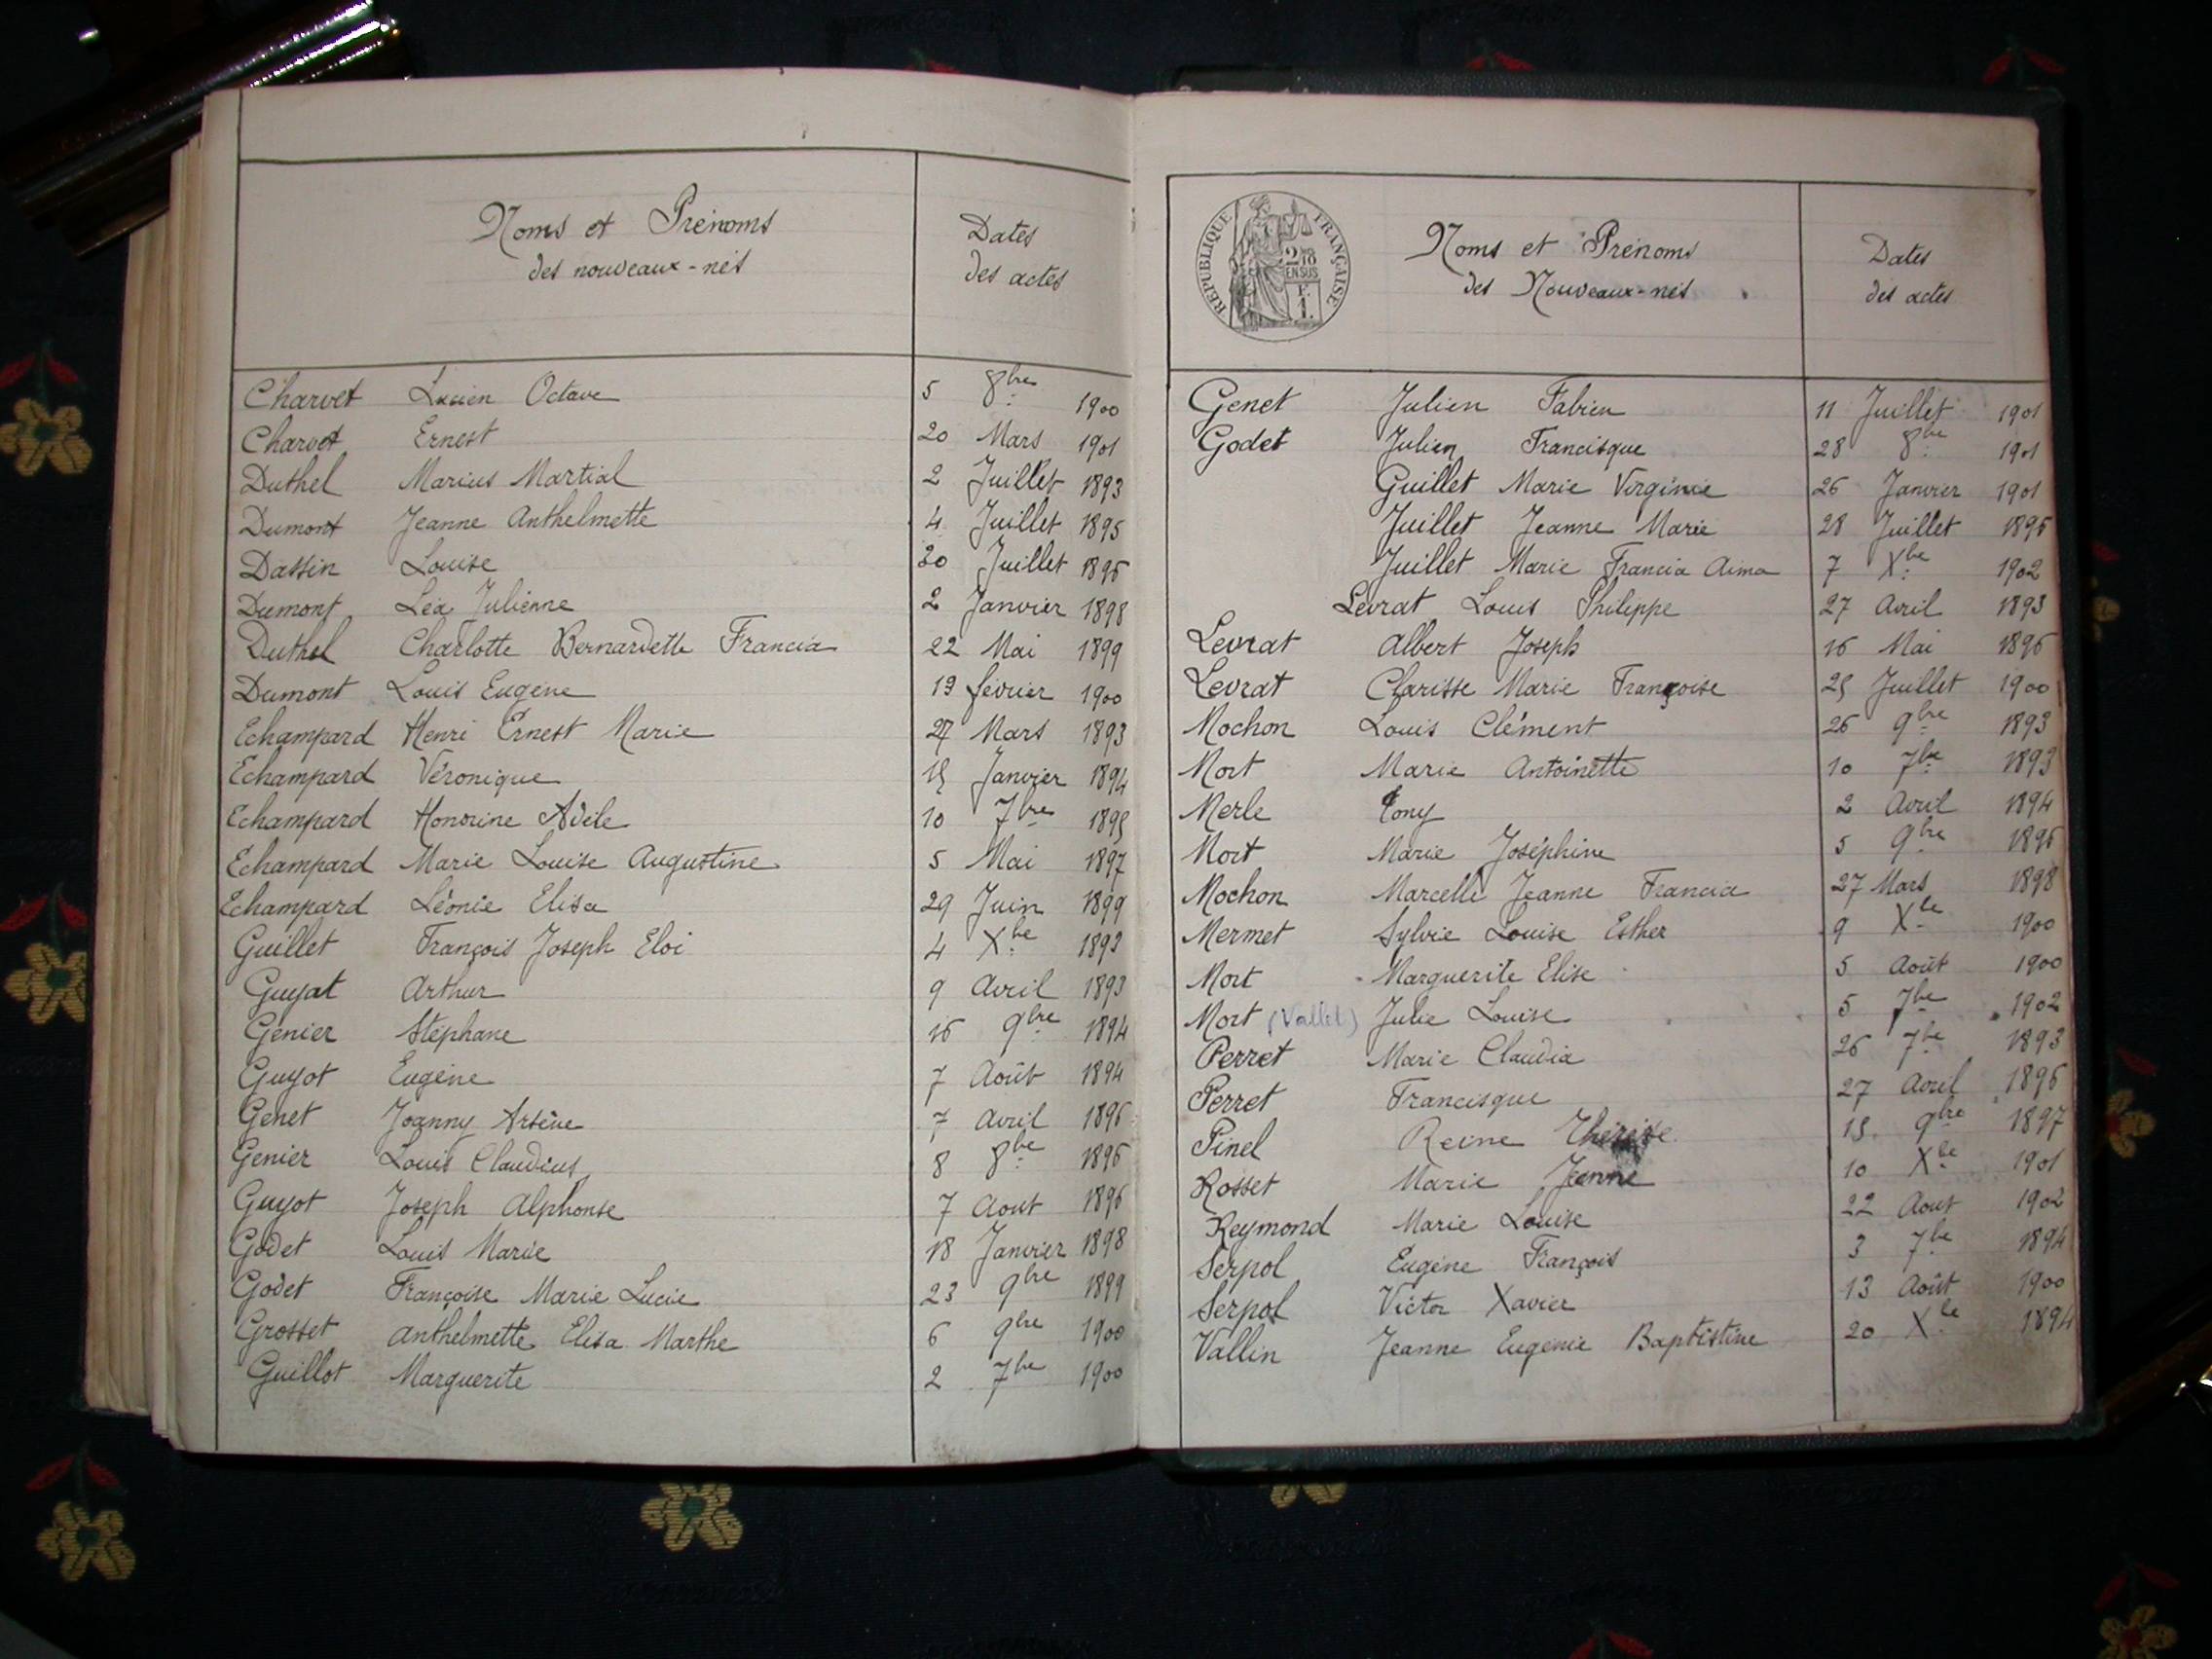 Noms et Prénoms
des nouveaux-nés
Dates
des actes
Charvet Lucien Octave 5 8bre 1900
Charvet Ernest 20 Mars 1901
Duthel Marius Martial 2 Juillet 1893
Dumont Jeanne Anthelmette 4 Juillet 1895
Dassin Louise 20 Juillet 1896
Dumont Léa Julienne 2 Janvier 1898
Duthel Charlotte Bernardette Francia 22 Mai 1899
Dumont Louis Eugène 19 février 1900
Echampard Henri Ernest Marie 27 Mars 1893
Echampard Véronique 15 Janvier 1894
Echampard Honorine Adèle 10 7bre 1895
Echampard Marie Louise Augustine 5 Mai 1897
Echampard Léonie Elisa 29 Juin 1899
Guillet François Joseph Eloi 4 Xbe 1893
Guyat Arthur 9 Avril 1893
Genier Stéphane 16 9bre 1894
Guyot Eugène 7 Août 1894
Genet Joanny Arsène 7 Avril 1896
Genier Louis Claudius 8 8be 1896
Guyot Joseph Alphonse 7 Aout 1896
Godet Louis Marie 18 Janvier 1898
Godet Françoise Marie Lucie 23 9bre 1899
Grosset Anthelmette Elisa Marthe 6 9bre 1900
Guillot Marguerite 2 7be 1900
RÉPUBLIQUE FRANÇAISE
EN SUS
Noms et Prénoms
des Nouveaux-nés
Dates
des actes
Genet Julien Fabien 11 Juillet 1901
Godet Julien Francisque 28 8be 1901
Guillet Marie Virginie 26 Janvier 1901
Juillet Jeanne Marie 28 Juillet 1896
Juillet Marie Francia Aima 7 Xbe 1902
Levrat Louis Philippe 27 Avril 1893
Levrat Albert Joseph 16 Mai 1896
Levrat Clarisse Marie Françoise 25 Juillet 1900
Mochon Louis Clément 26 9bre 1893
Mort Marie Antoinette 10 7be 1893
Merle Tony 2 Avril 1894
Mort Marie Joséphine 5 9bre 1896
Mochon Marcelle Jeanne Francia 27 Mars 1898
Mermet Sylvie Louise Esther 9 Xbe 1900
Mort Marguerite Elise 5 Août 1900
Mort (Vallet) Julie Louise 5 7be 1902
Perret Marie Claudia 26 7be 1893
Perret Francisque 27 Avril 1896
Pinel Reine Thérèse 15 9bre 1897
Rosset Marie Jeanne 10 Xbe 1901
Reymond Marie Louise 22 Aout 1902
Serpol Eugène François 3 7be 1894
Serpol Victor Xavier 13 Août 1900
Vallin Jeanne Eugénie Baptistine 20 Xbe 1894